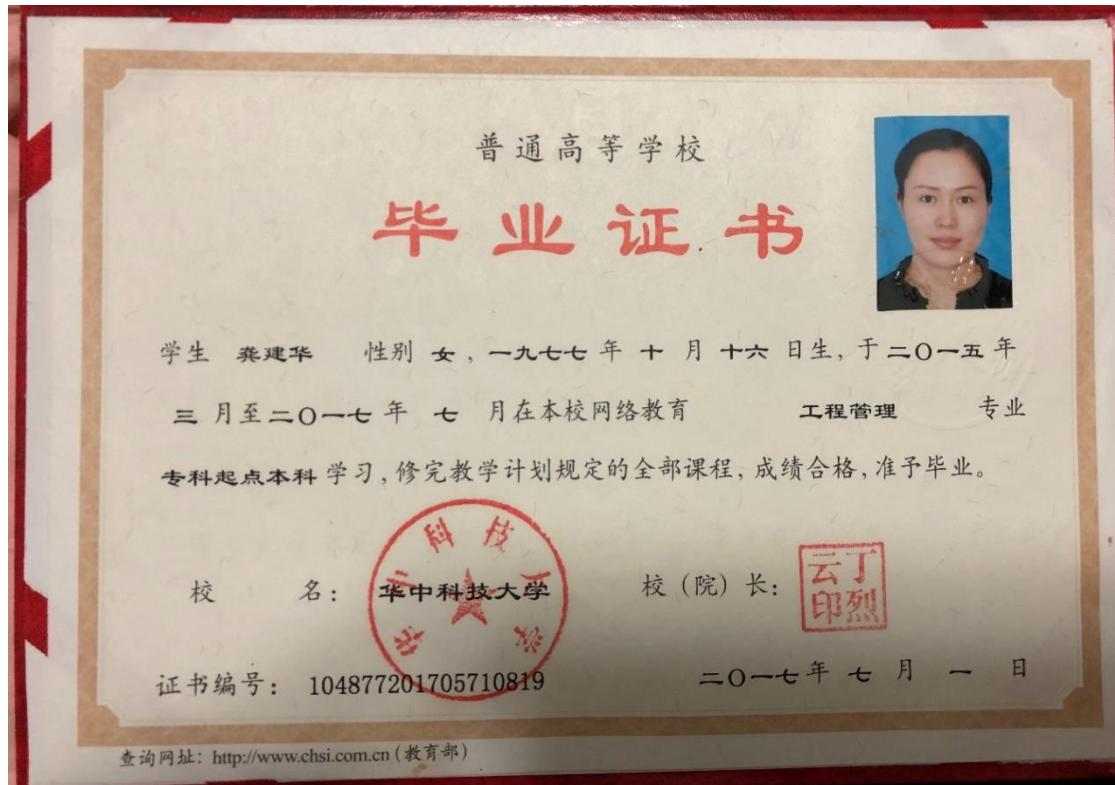 普通高等学校
毕业证书
学生 龚建华 性别 女，一九七七 年 十 月 十六 日生，于 二〇一五 年
三 月至 二〇一七 年 七 月在本校网络教育 工程管理 专业
专科起点本科 学习，修完教学计划规定的全部课程，成绩合格，准予毕业。
华中科技大学
校 名： 华中科技大学 校（院）长： 丁烈云印
证书编号： 104877201705710819 二〇一七 年 七 月 一 日
查询网址：http://www.chsi.com.cn（教育部）